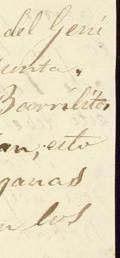 del Geni
unta.
Barrilito
an, esto
ganas
n los